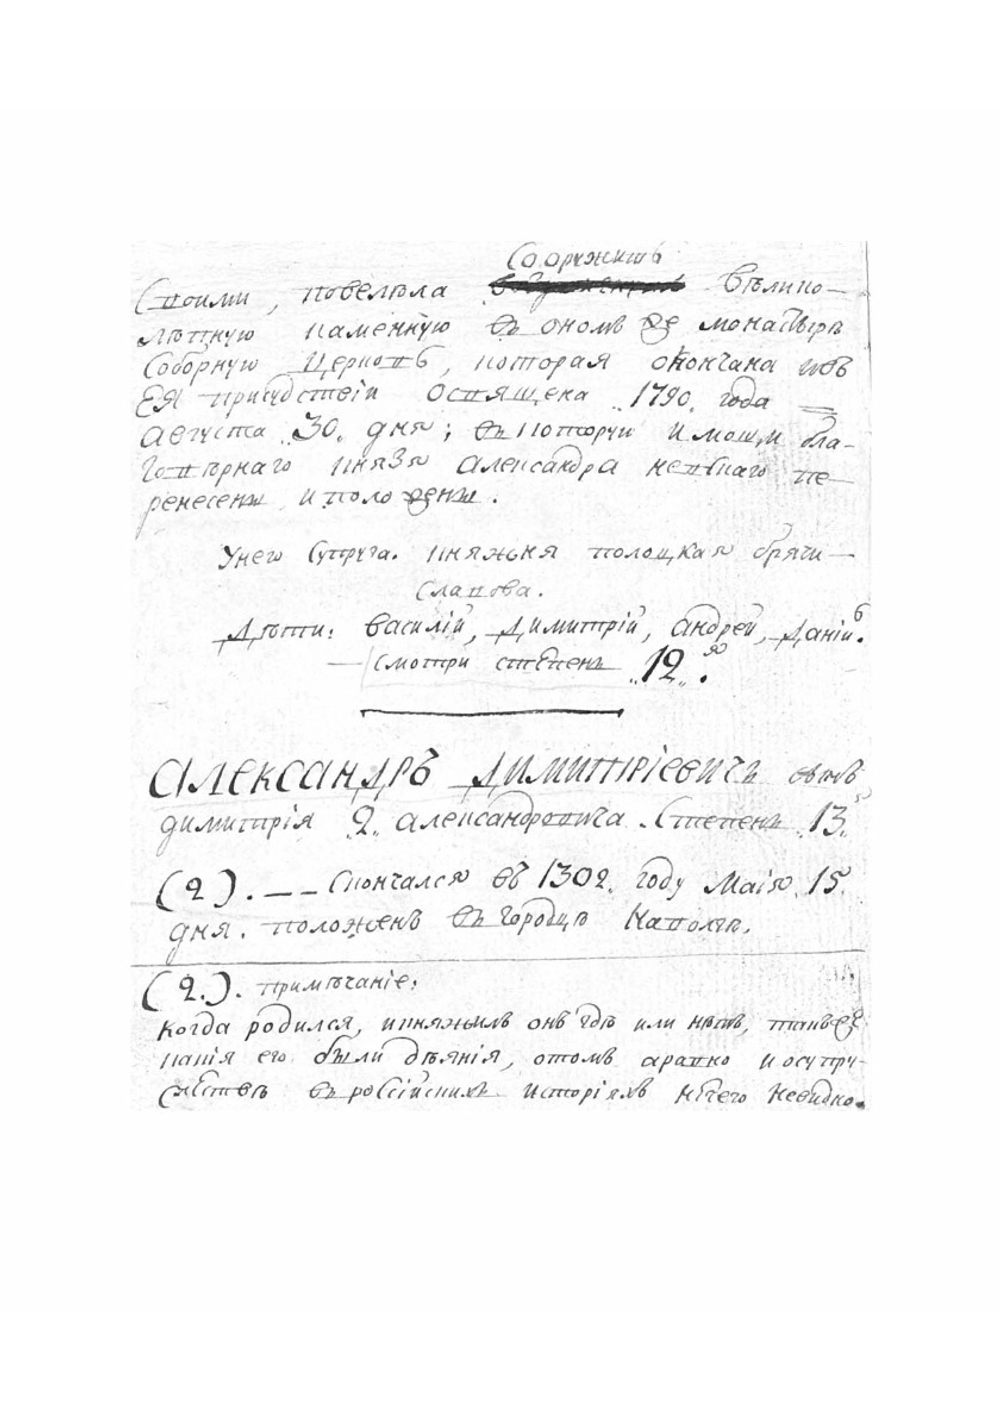 Сооружить
своими, повелѣла вѣлико-
лѣпную каменную въ ономъ же монастырѣ
соборную церковь, которая окончана и въ
Ея присудствіи освящена 1790. года
августа 30. дня; въ которую и мощи бла-
говѣрнаго князя александра невскаго пе-
ренесены и положены.
Унего супруга. княжня полоцкая брячи-
славова.
Дѣти: василій, Димитрій, андрей, Даніилъ.
смотри степень 12.я
Александръ Димитріевичь сынъ
димитрія 2. александровича. Степень 13.
(2). — — Скончался въ 1302. году Маія 15.
дня. положенъ въ городцѣ Наполѣ.
(2.). примѣчаніе:
когда родился, и княжилъ онъ гдѣ или нѣтъ, такъже
какія его были дѣянія, о томъ а равно и о супру-
жествѣ въ россійскихъ исторіяхъ ничего невидно.